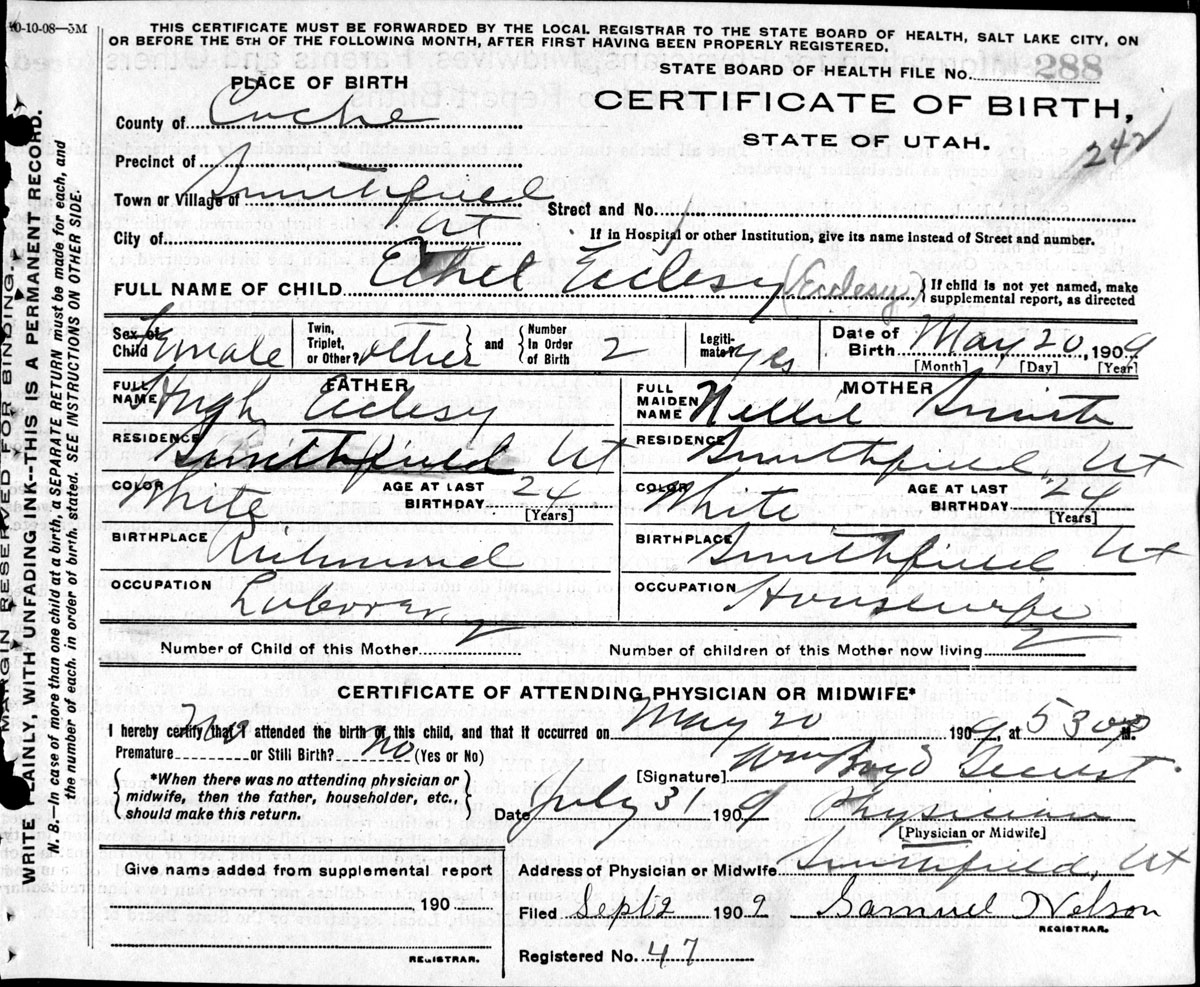 10-10-08—5M
THIS CERTIFICATE MUST BE FORWARDED BY THE LOCAL REGISTRAR TO THE STATE BOARD OF HEALTH, SALT LAKE CITY, ON
OR BEFORE THE 5TH OF THE FOLLOWING MONTH, AFTER FIRST HAVING BEEN PROPERLY REGISTERED.
PLACE OF BIRTH
STATE BOARD OF HEALTH FILE No. 288
County of Cache
CERTIFICATE OF BIRTH,
STATE OF UTAH.
242
Precinct of
Town or Village of Smithfield
Street and No.
City of Ut
If in Hospital or other Institution, give its name instead of Street and number.
FULL NAME OF CHILD Ethel Ecclesy (Ecclesy) { If child is not yet named, make
supplemental report, as directed
Sex of Child Female
Twin, Triplet, or Other other } and { Number In Order of Birth 2
Legitimate? yes
Date of Birth May 20, 1909
[Month] [Day] [Year]
FATHER
FULL NAME Hugh Eclesy
MOTHER
FULL MAIDEN NAME Nellie Smith
RESIDENCE Smithfield Ut
RESIDENCE Smithfield Ut
COLOR White
AGE AT LAST BIRTHDAY 24
[Years]
COLOR White
AGE AT LAST BIRTHDAY 24
[Years]
BIRTHPLACE Richmond
BIRTHPLACE Smithfield Ut
OCCUPATION Laborer
OCCUPATION Housewife
Number of Child of this Mother 2
Number of children of this Mother now living 2
CERTIFICATE OF ATTENDING PHYSICIAN OR MIDWIFE*
I hereby certify that I attended the birth of this child, and that it occurred on May 20 1909, at 530 P M.
Premature No or Still Birth? no (Yes or No)
{ *When there was no attending physician or
midwife, then the father, householder, etc.,
should make this return. }
[Signature] Wm Boyd
Date July 31 1909 Physician
[Physician or Midwife]
Address of Physician or Midwife Smithfield, Ut
Give name added from supplemental report
190
REGISTRAR.
Filed Sept 2 1909 Samuel Nelson
REGISTRAR.
Registered No. 47
MARGIN RESERVED FOR BINDING.
WRITE PLAINLY, WITH UNFADING INK--THIS IS A PERMANENT RECORD.
N. B.—In case of more than one child at a birth, a SEPARATE RETURN must be made for each, and
the number of each, in order of birth, stated. SEE INSTRUCTIONS ON OTHER SIDE.